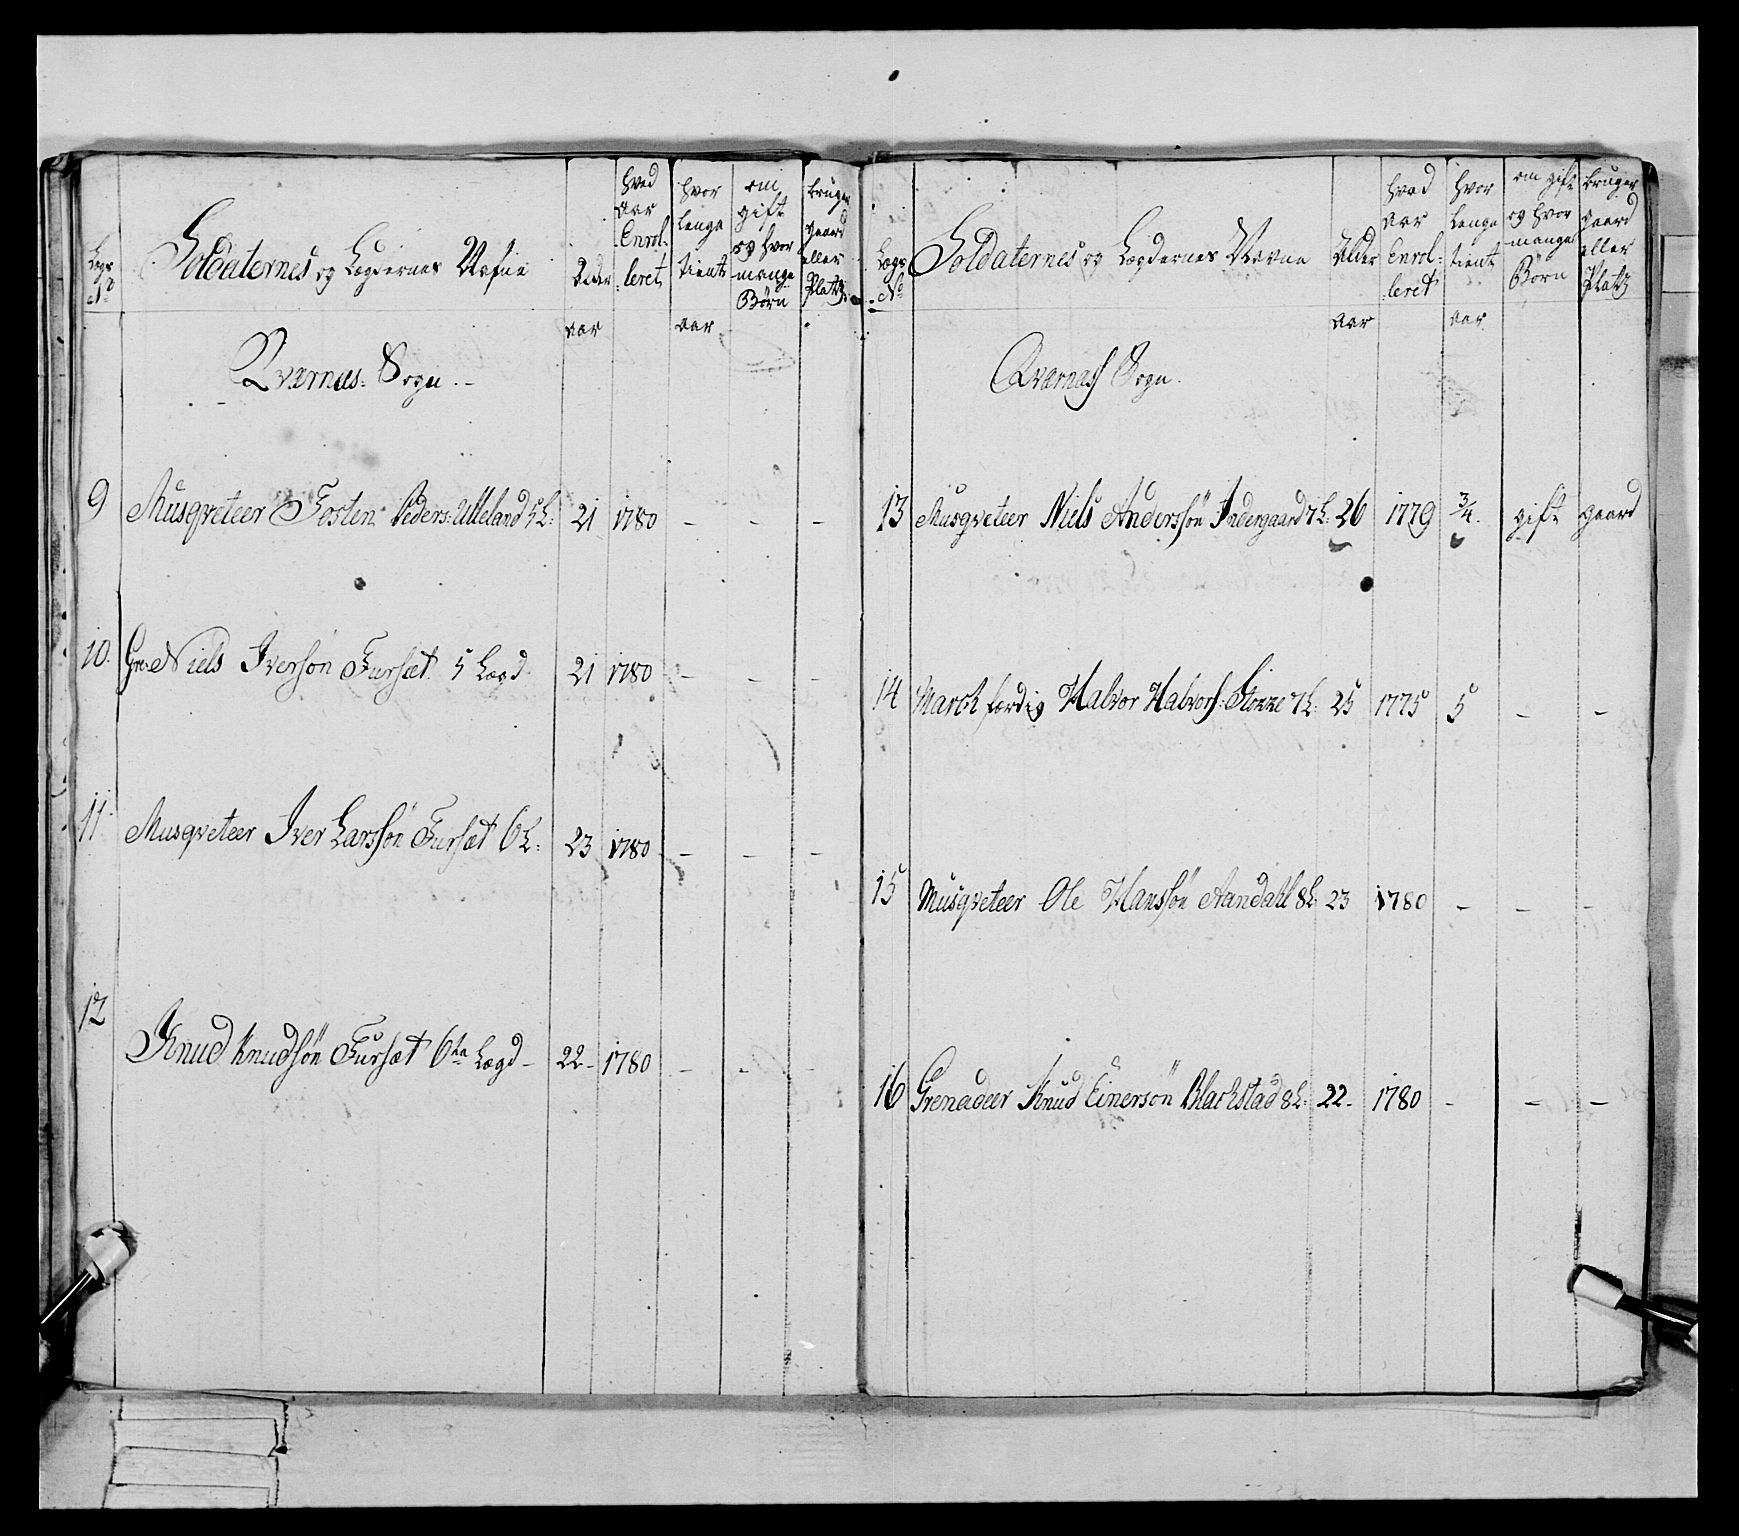 Legs No
Soldaternes og Lægdernes Nafne
Alder
aar
hvad aar Enrolleret
hvor lenge tient
aar
om gift og hvor mange Börn
bruger gaard eller Platz
Qværnæs: Sogn.-
9 Musqveteer Tosten Peders: Ulleland 5 L: 21 1780 - - -
10. Gre: Niels Iversön Fursæt 5 Lægd 21 1780 - - -
11 Musqveteer Iver Larssön Fursæt 6 L: 23 1780 - - -
12 Knud Knudsön Fursæt 6te Lægd - 22- 1780 - - -
Lægs No
Soldaternes og Lægdernes Navne
Alder
aar
hvad aar Enrolleret
hvor lenge tient
aar
om gift og hvor mange Börn
bruger gaard eller Platz
Qværnæss Sogn.
13 Musqveteer Niels Anderssön Indergaard 7 L: 26 1779 3/4. gift gaard
14 March færdig Halvor Halvors: Stokke 7 L: 25 1775 5 - -
15 Musqveteer Ole Hanssön Aandahl 8 L: 23 1780 - - -
16 Grenadeer Knud Einersön Blackstad 8 L: 22- 1780 - - -